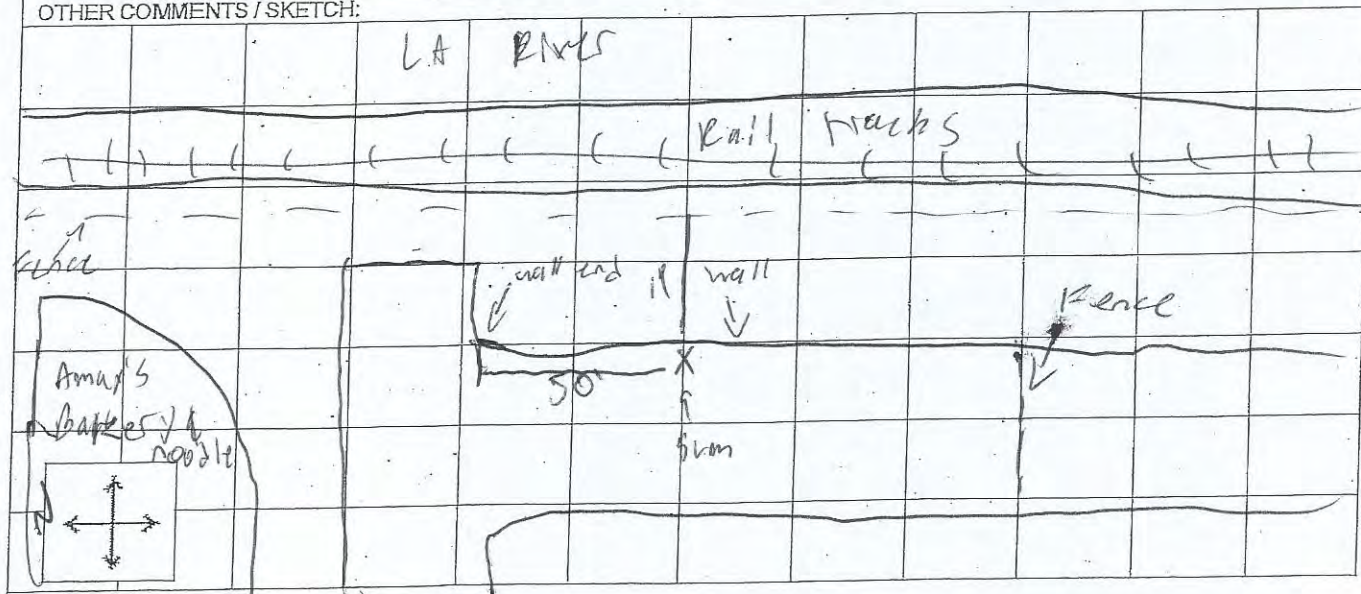 OTHER COMMENTS / SKETCH:
LA River
Rail tracks
wall end
wall
Fence
50'
Amay's
Bakery &
noodle
X
N